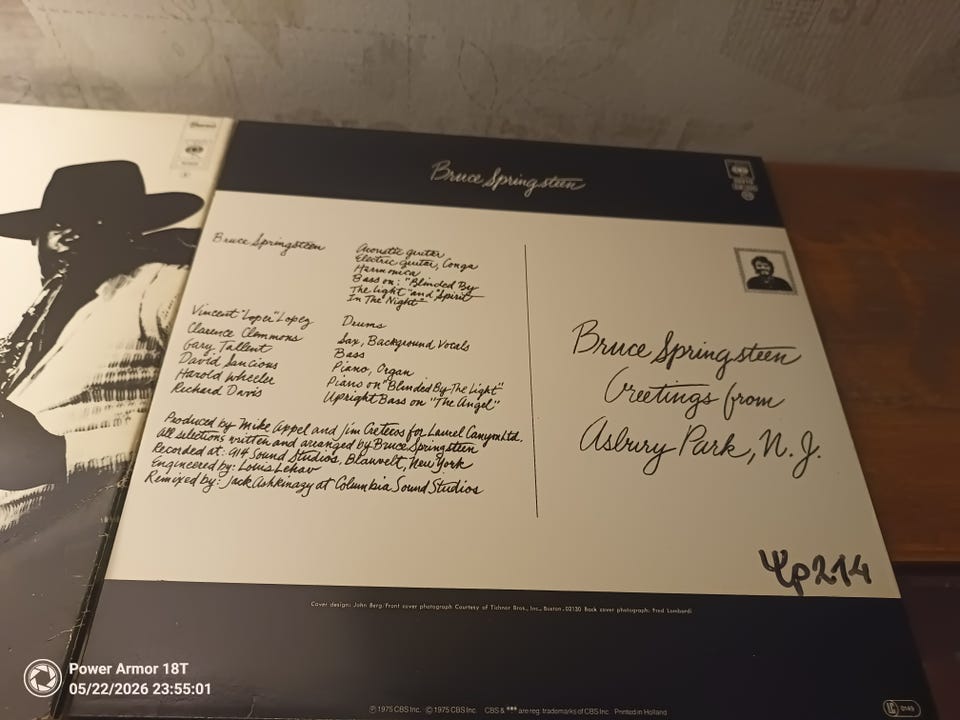 Bruce Springsteen
Bruce Springsteen
Acoustic guitar
Electric guitar, Conga
Harmonica
Bass on: "Blinded By
The Light" and "Spirit
In The Night"
Vincent "Loper" Lopez Drums
Clarence Clemmons Sax, Background Vocals
Gary Tallent Bass
David Sancious Piano, Organ
Harold Wheeler Piano on "Blinded By The Light"
Richard Davis Upright Bass on "The Angel"
Produced by Mike Appel and Jim Cretecos for Laurel Canyon Ltd.
All selections written and arranged by Bruce Springsteen
Recorded at: 914 Sound Studios, Blauvelt, New York
Engineered by: Louis Lahav
Remixed by: Jack Ashkinazy at Columbia Sound Studios
Bruce Springsteen
Greetings from
Asbury Park, N.J.
214
Cover design: John Berg/Front cover photograph Courtesy of Tichnor Bros., Inc., Boston 02130 Back cover photograph: Fred Lombardi
℗ 1975 CBS Inc. © 1975 CBS Inc. CBS & are reg. trademarks of CBS Inc. Printed in Holland
LC 0149
Power Armor 18T
05/22/2026 23:55:01